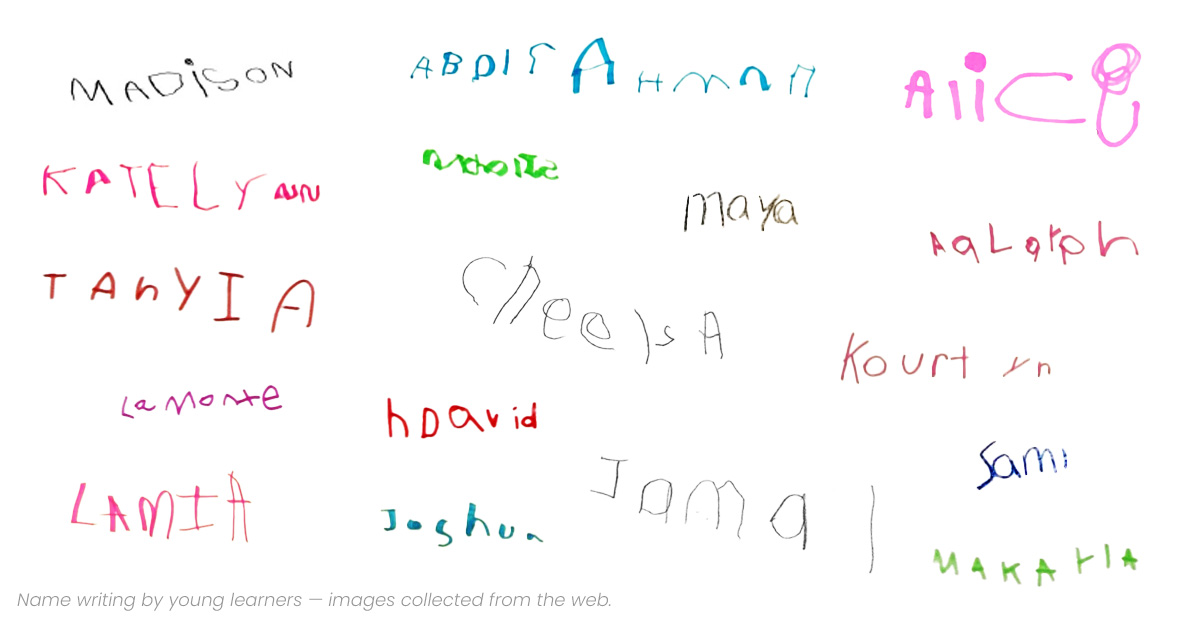 MADISON
ABDIrAHmAn
AliCe
KATELYNN
maya
AaLaYph
TAnYIA
CheelsA
Kourtyn
LaMonte
hDavid
Sami
LAMIA
Jamal
Joshua
MAKAYIA
Name writing by young learners — images collected from the web.